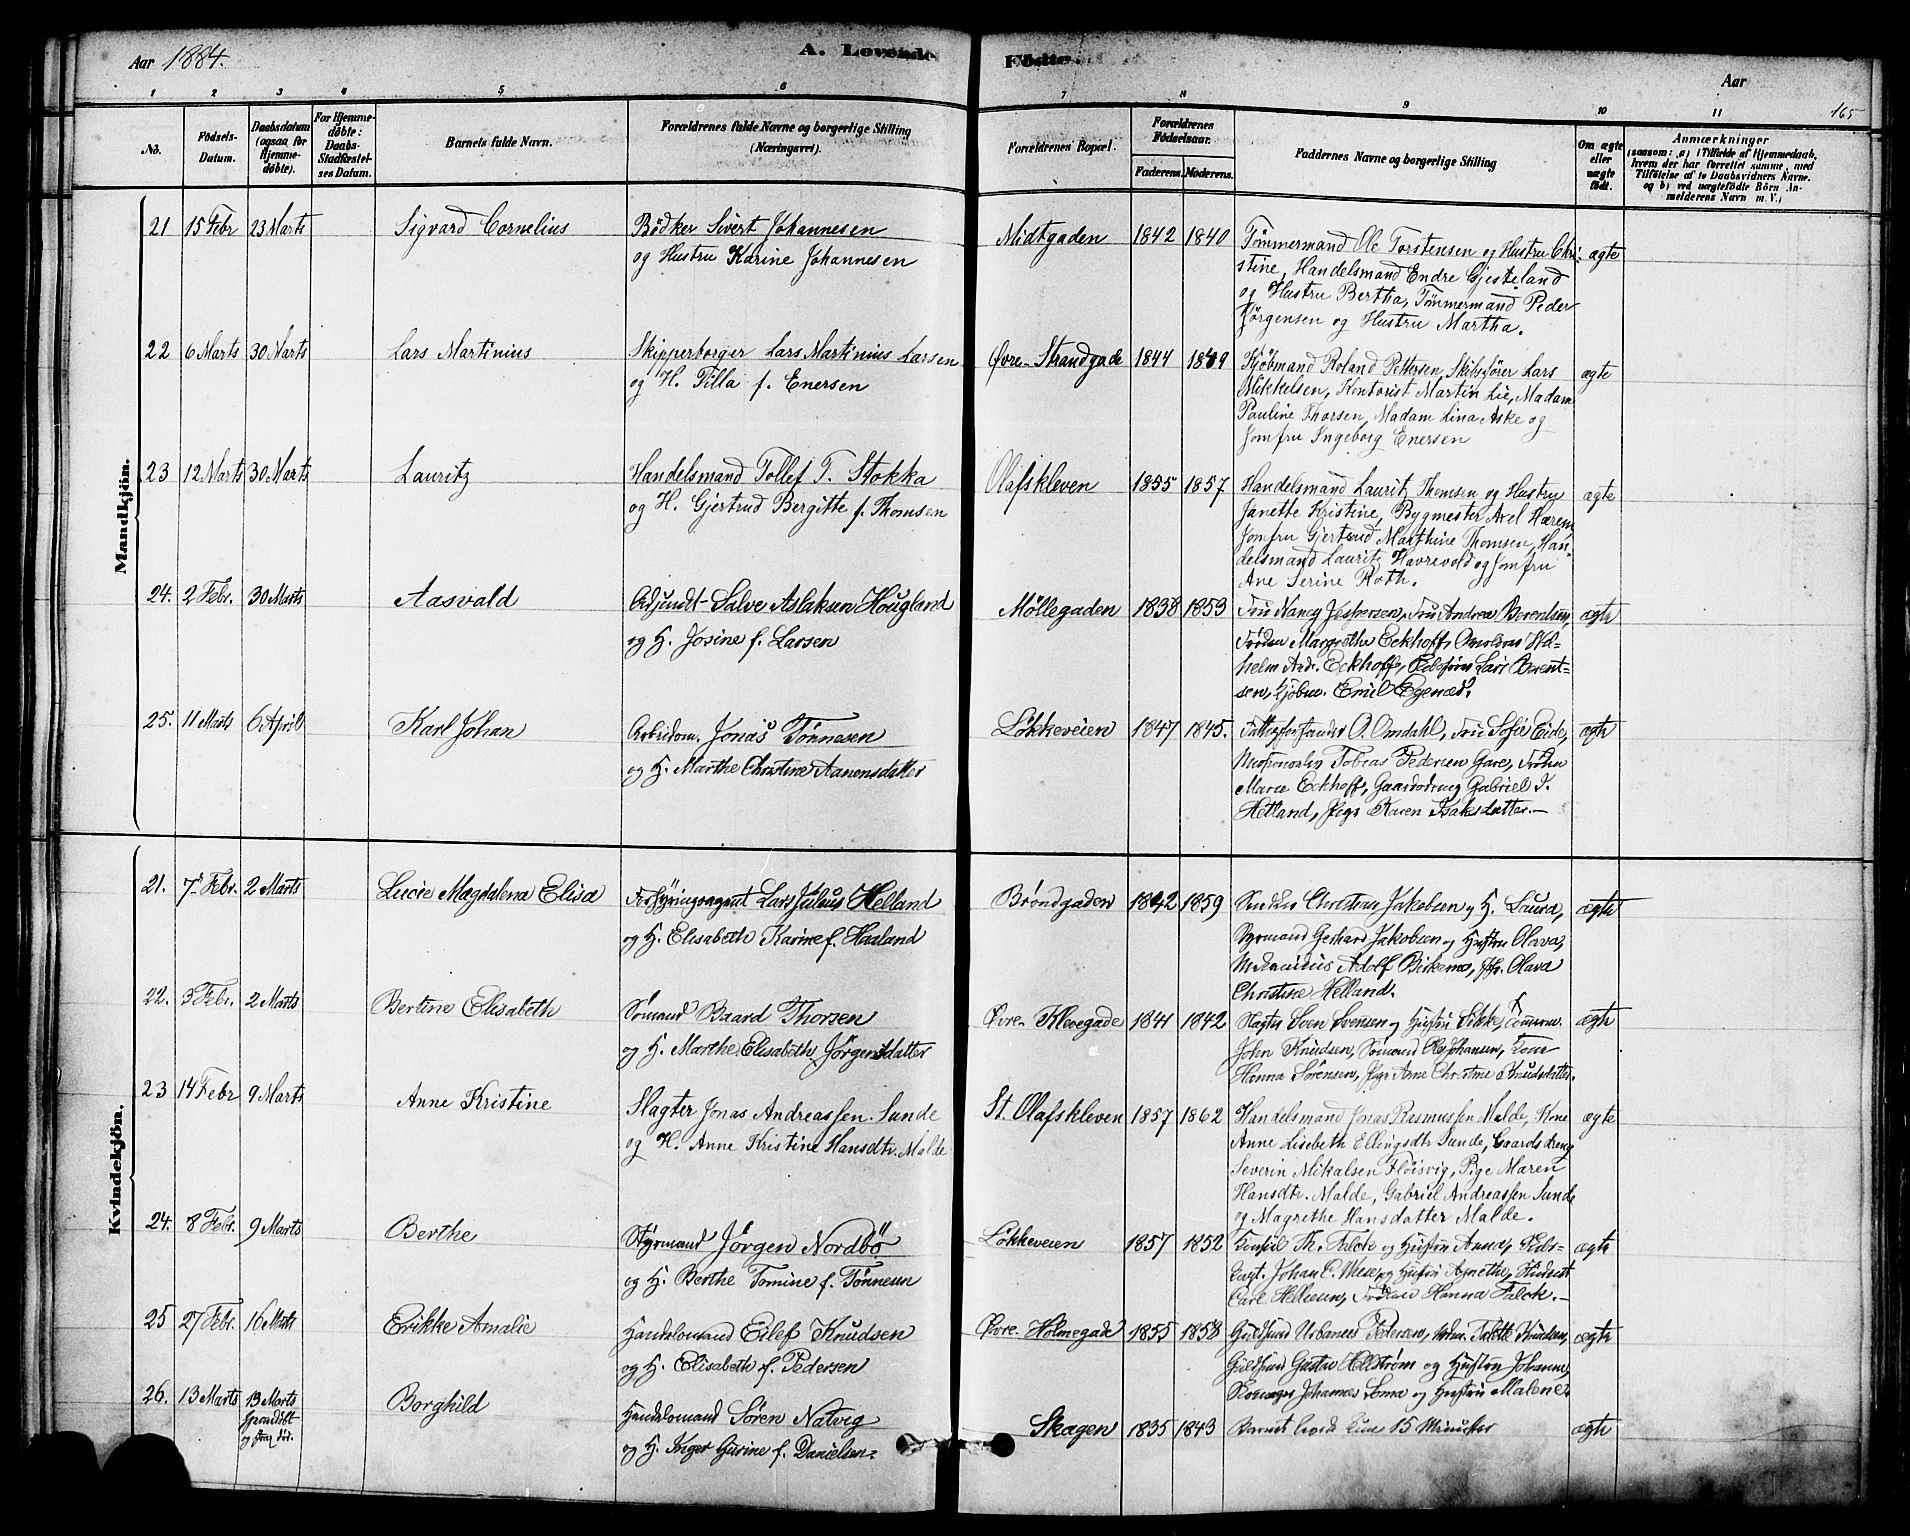 Aar 1884.
A. Levende
Fødte
Aar
165
1 2 3 4 5 6 7 8 9 10 11
No.
Fødsels-Datum.
Daabsdatum (ogsaa for Hjemmedøbte).
For Hjemmedøbte: Daabs-Stadfæstelses Datum.
Barnets fulde Navn.
Forældrenes fulde Navne og borgerlige Stilling (Næringsvei).
Forældrenes Bopæl.
Forældrenes Fødselsaar.
Faderens. Moderens.
Faddernes Navne og borgerlige Stilling
Om ægte eller uægte født.
Anmærkninger
(saasom: a) i Tilfælde af Hjemmedaab,
hvem der har forrettet samme, med
Tilføielse af to Daabsvidners Navne.
og b) ved uægtefødte Börn An-
melderens Navn m. V.)
Mandkjön.
21 15 Febr 23 Marts Sigvard Cornelius Bödker Sivert Johannesen
og Hustru Karine Johannesen
Midtgaden 1842 1840 Tømmermand Ole Torstensen og Hustru Chri- ægte
stine, Handelsmand Endre Gjesteland
og Hustru Bertha, Tømmermand Peder
Jörgensen og Hustru Martha.
22 6 Marts 30 Marts Lars Martinius Skipperborger Lars Martinius Larsen
og H. Tilla f. Enersen
Øvre-Strandgade 1844 1849 Kjøbmand Roland Pettersen, Skibsfører Lars ægte
Mikkelsen, Kontorist Martin Lie, Madam
Pauline Thorsen, Madam Lina Aske og
Jomfru Ingeborg Enersen
23 12 Marts 30 Marts Lauritz Handelsmand Tollef T. Stokka
og H. Gjertrud Bergitte f. Thomsen
Olafskleven 1855 1857 Handelsmand Lauritz Thomsen og Hustru ægte
Janette Kristine, Bygmester Axel Hærem
Jomfru Gjertrud Marthine Thomsen, Han-
delsmand Lauritz Havrevold og Jomfru
Ane Serine Roth.
24. 2 Febr. 30 Marts Aasvald Adjunkt Salve Aslaksen Hougland
og H. Josine f. Larsen
Möllegaden 1838 1853 Fru Nancy Jespersen, Fru Andrea Berentsen, ægte
Frøken Margrethe Eckhoff, Wil-
helm Andr. Eckhoff, Skibsfører Lars Berent-
sen, Kjøbm. Emil Egenæs.
25. 11 Marts 6 April Karl Johan Arbeidsm. Jonas Tönnesen
og H. Marthe Christine Aanensdatter
Løkkeveien 1847 1845. O. Omdahl, Fru Sofie Eide, ægte
Tobias Pedersen Gare, Frøken
Marie Eckhoff, Gaardsdreng Gabriel J.
Helland, Pige Karen Isaksdatter.
Kvindekjön.
21. 7 Febr. 2 Marts Lucie Magdalena Elisa Forsyringsagent Lars Julius Helland
og H. Elisabeth Karine f. Haaland
Brøndgaden 1842 1859 Christian Jakobsen og H. Laura, ægte
Styrmand Gerhard Jakobsen og Hustru Olava,
Adolf Birkemo, Olava
Christine Helland.
22. 3 Febr. 2 Marts Bertine Elisabeth Sømand Baard Thorsen
og H. Marthe Elisabeth Jörgensdatter
Øvre-Klevegade 1841 1842 Slagter Sven Svensen og Hustru Sikke, Tømmerm. ægte
John Knudsen, Sømand Ole Johansen, Kone
Hanna Sörensen, Pige Anne Christine Knudsdatter.
23 14 Febr 9 Marts Anne Kristine Slagter Jonas Andreassen Sunde
og H. Anne Kristine Hansdtr. Malde
St. Olafskleven 1857 1862 Handelsmand Jonas Rasmussen Malde, Kone ægte
Anne Lisebeth Ellingsdtr Sunde, Gaardsdreng
Severin Mikalsen Fløisvig, Pige Maren
Hansdtr. Malde, Gabriel Andreassen Sunde
og Magrethe Hansdatter Malde.
24. 8 Febr. 9 Marts Berthe Styrmand Jörgen Nordbö
og H. Berthe Tomine f. Tönnesen
Løkkeveien 1857 1852 Konsul Th. Falck og Hustru Anna, Skibs- ægte
Johan C. og Hustru Agnethe, Student
Carl Helliesen, Frøken Hanna Falck.
25 27 Febr. 16 Marts Erikke Amalie Handelsmand Eilef Knudsen
og H. Elisabeth f. Pedersen
Øvre-Holmegade 1855 1858 Guldsmed Urbanus Pedersen, Mdm. Tolette Knudsen, ægte
Guldsmed Gustav Hellström og Hustru Johanne,
Skomager Johannes Soma og Hustru Malene.
26. 13 Marts 13 Marts Borghild Handelsmand Sören Natvig
Hjemdøbt
og strax død.
og H. Inger Gurine f. Danielsen.
Skagen 1835 1843 Barnet levede kun 15 Minutter ægte